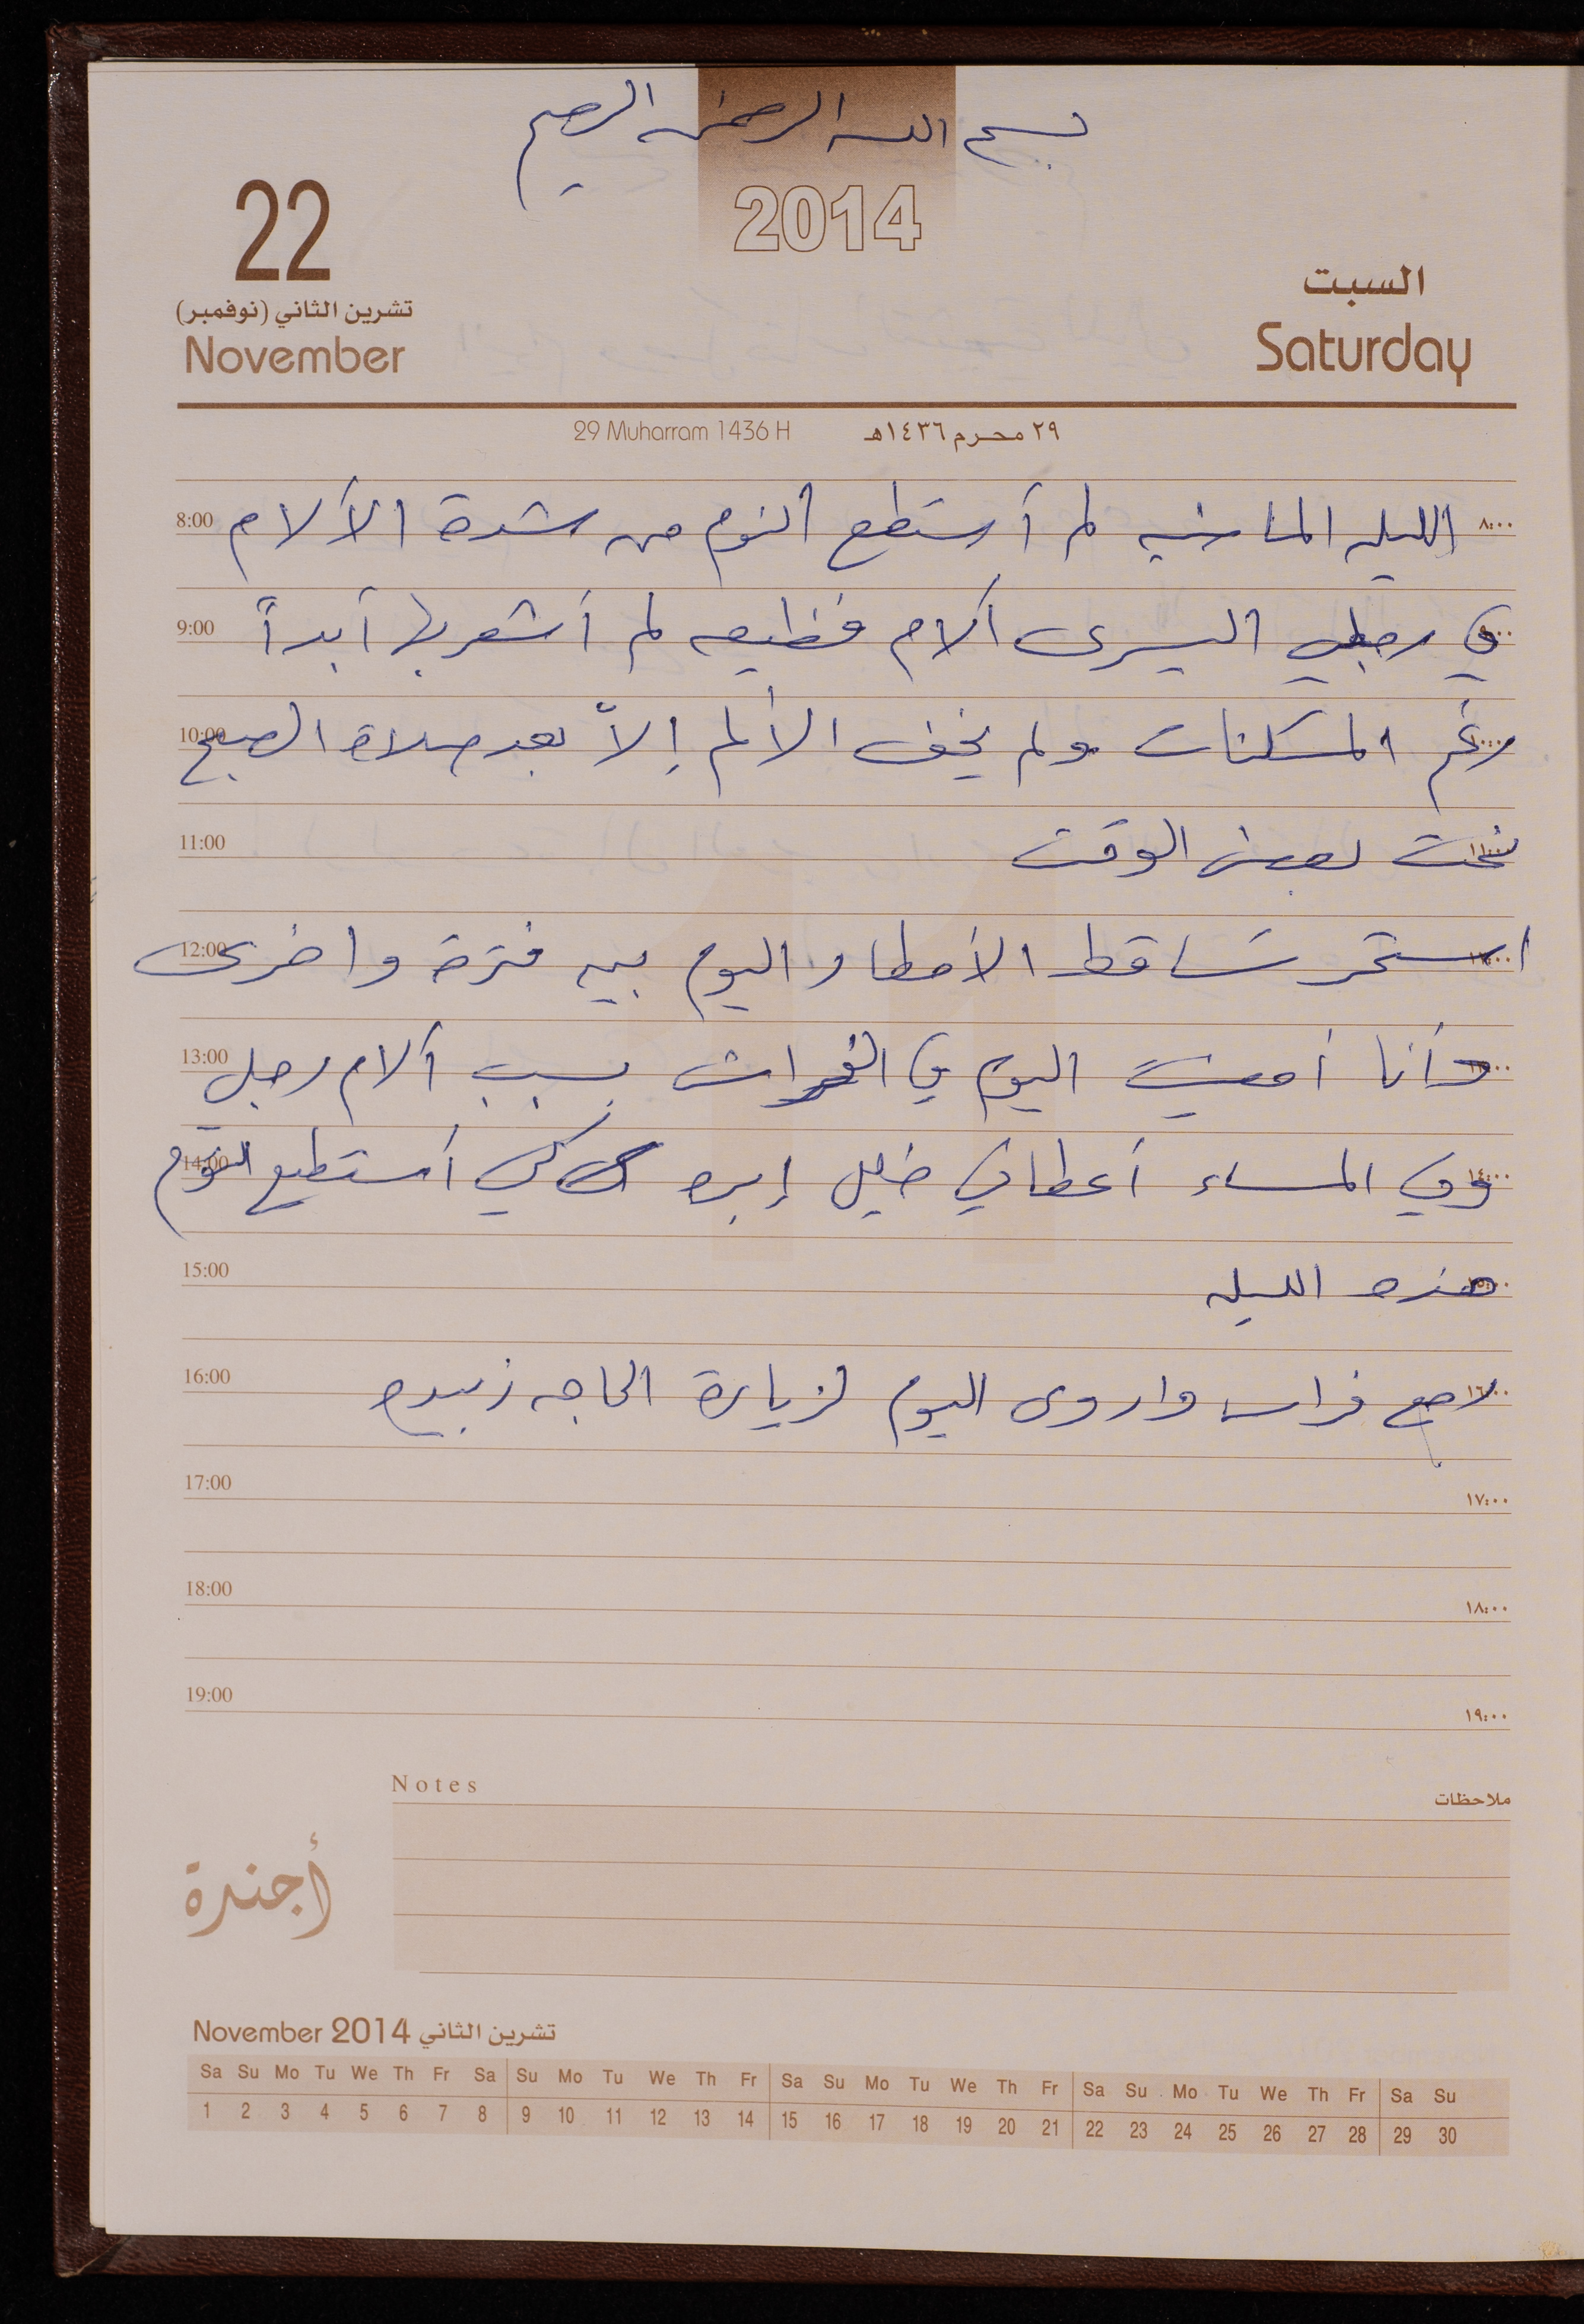 بسم الله الرحمن الرحيم
2014
22
تشرين الثاني (نوفمبر)
November
السبت
Saturday
29 Muharram 1436 H ٢٩ محرم ١٤٣٦هـ
8:00 الليله الماضيه لم أستطع النوم من شدة الألام ٨:٠٠
9:00 في رجلي اليسرى آلام فظيعه لم أشعر بها أبداً
10:00 رغم المسكنات ولم يخف الألم إلاّ بعد صلاة الصبح
11:00 نمت بعض الوقت ١١:٠٠
12:00 استمر تساقط الأمطار اليوم بين فترة واخرى
13:00 وأنا أمضيت اليوم في الفراش بسبب آلام رجلي
14:00 وفي المساء أعطاني خليل إبره كي أستطيع النوم ١٤:٠٠
15:00 هذه الليله
16:00 رجع فراس واروى اليوم لزيارة الحاجه زبيده ١٦:٠٠
17:00 ١٧:٠٠
18:00 ١٨:٠٠
19:00 ١٩:٠٠
Notes ملاحظات
أجندة
November 2014 تشرين الثاني
Sa Su Mo Tu We Th Fr Sa Su Mo Tu We Th Fr Sa Su Mo Tu We Th Fr Sa Su Mo Tu We Th Fr Sa Su
1 2 3 4 5 6 7 8 9 10 11 12 13 14 15 16 17 18 19 20 21 22 23 24 25 26 27 28 29 30